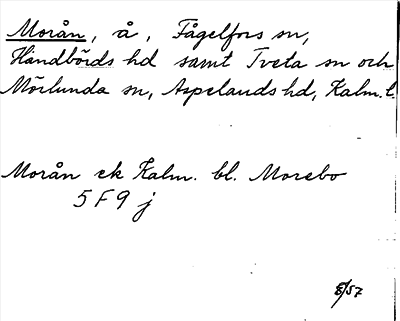 Morån, å, Fågelfors sn,
Handbörds hd samt Tveta sn och
Mörlunda sn, Aspelands hd, Kalm. l.
Morån ek Kalm. bl. Morebo
5 F 9 j
E/57